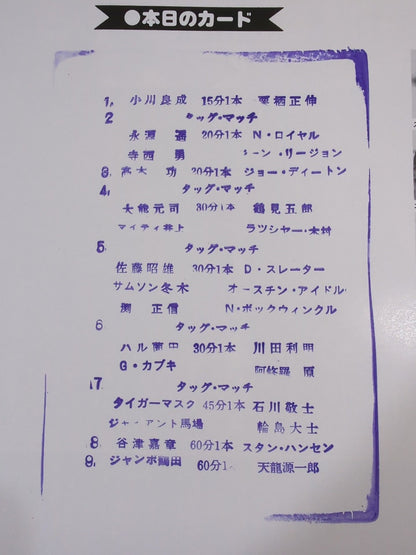 ●本日のカード
1. 小川良成 15分1本 栗栖正伸
2 タッグ・マッチ
永源 遥 20分1本 N・ロイヤル
寺西 勇 シーン・リージョン
3. 高木 功 20分1本 ジョー・ディートン
4. タッグ・マッチ
大熊元司 30分1本 鶴見五郎
マイティ井上 ラッシャー・木村
5. タッグ・マッチ
佐藤昭雄 30分1本 D・スレーター
サムソン冬木 オースチン・アイドル
渕 正信 N・ボックウィンクル
6 タッグ・マッチ
ハル薗田 30分1本 川田利明
G・カブキ 阿修羅 原
7 タッグ・マッチ
タイガーマスク 45分1本 石川敬士
ジャイアント馬場 輪島大士
8. 谷津嘉章 60分1本 スタン・ハンセン
9. ジャンボ鶴田 60分1 天龍源一郎